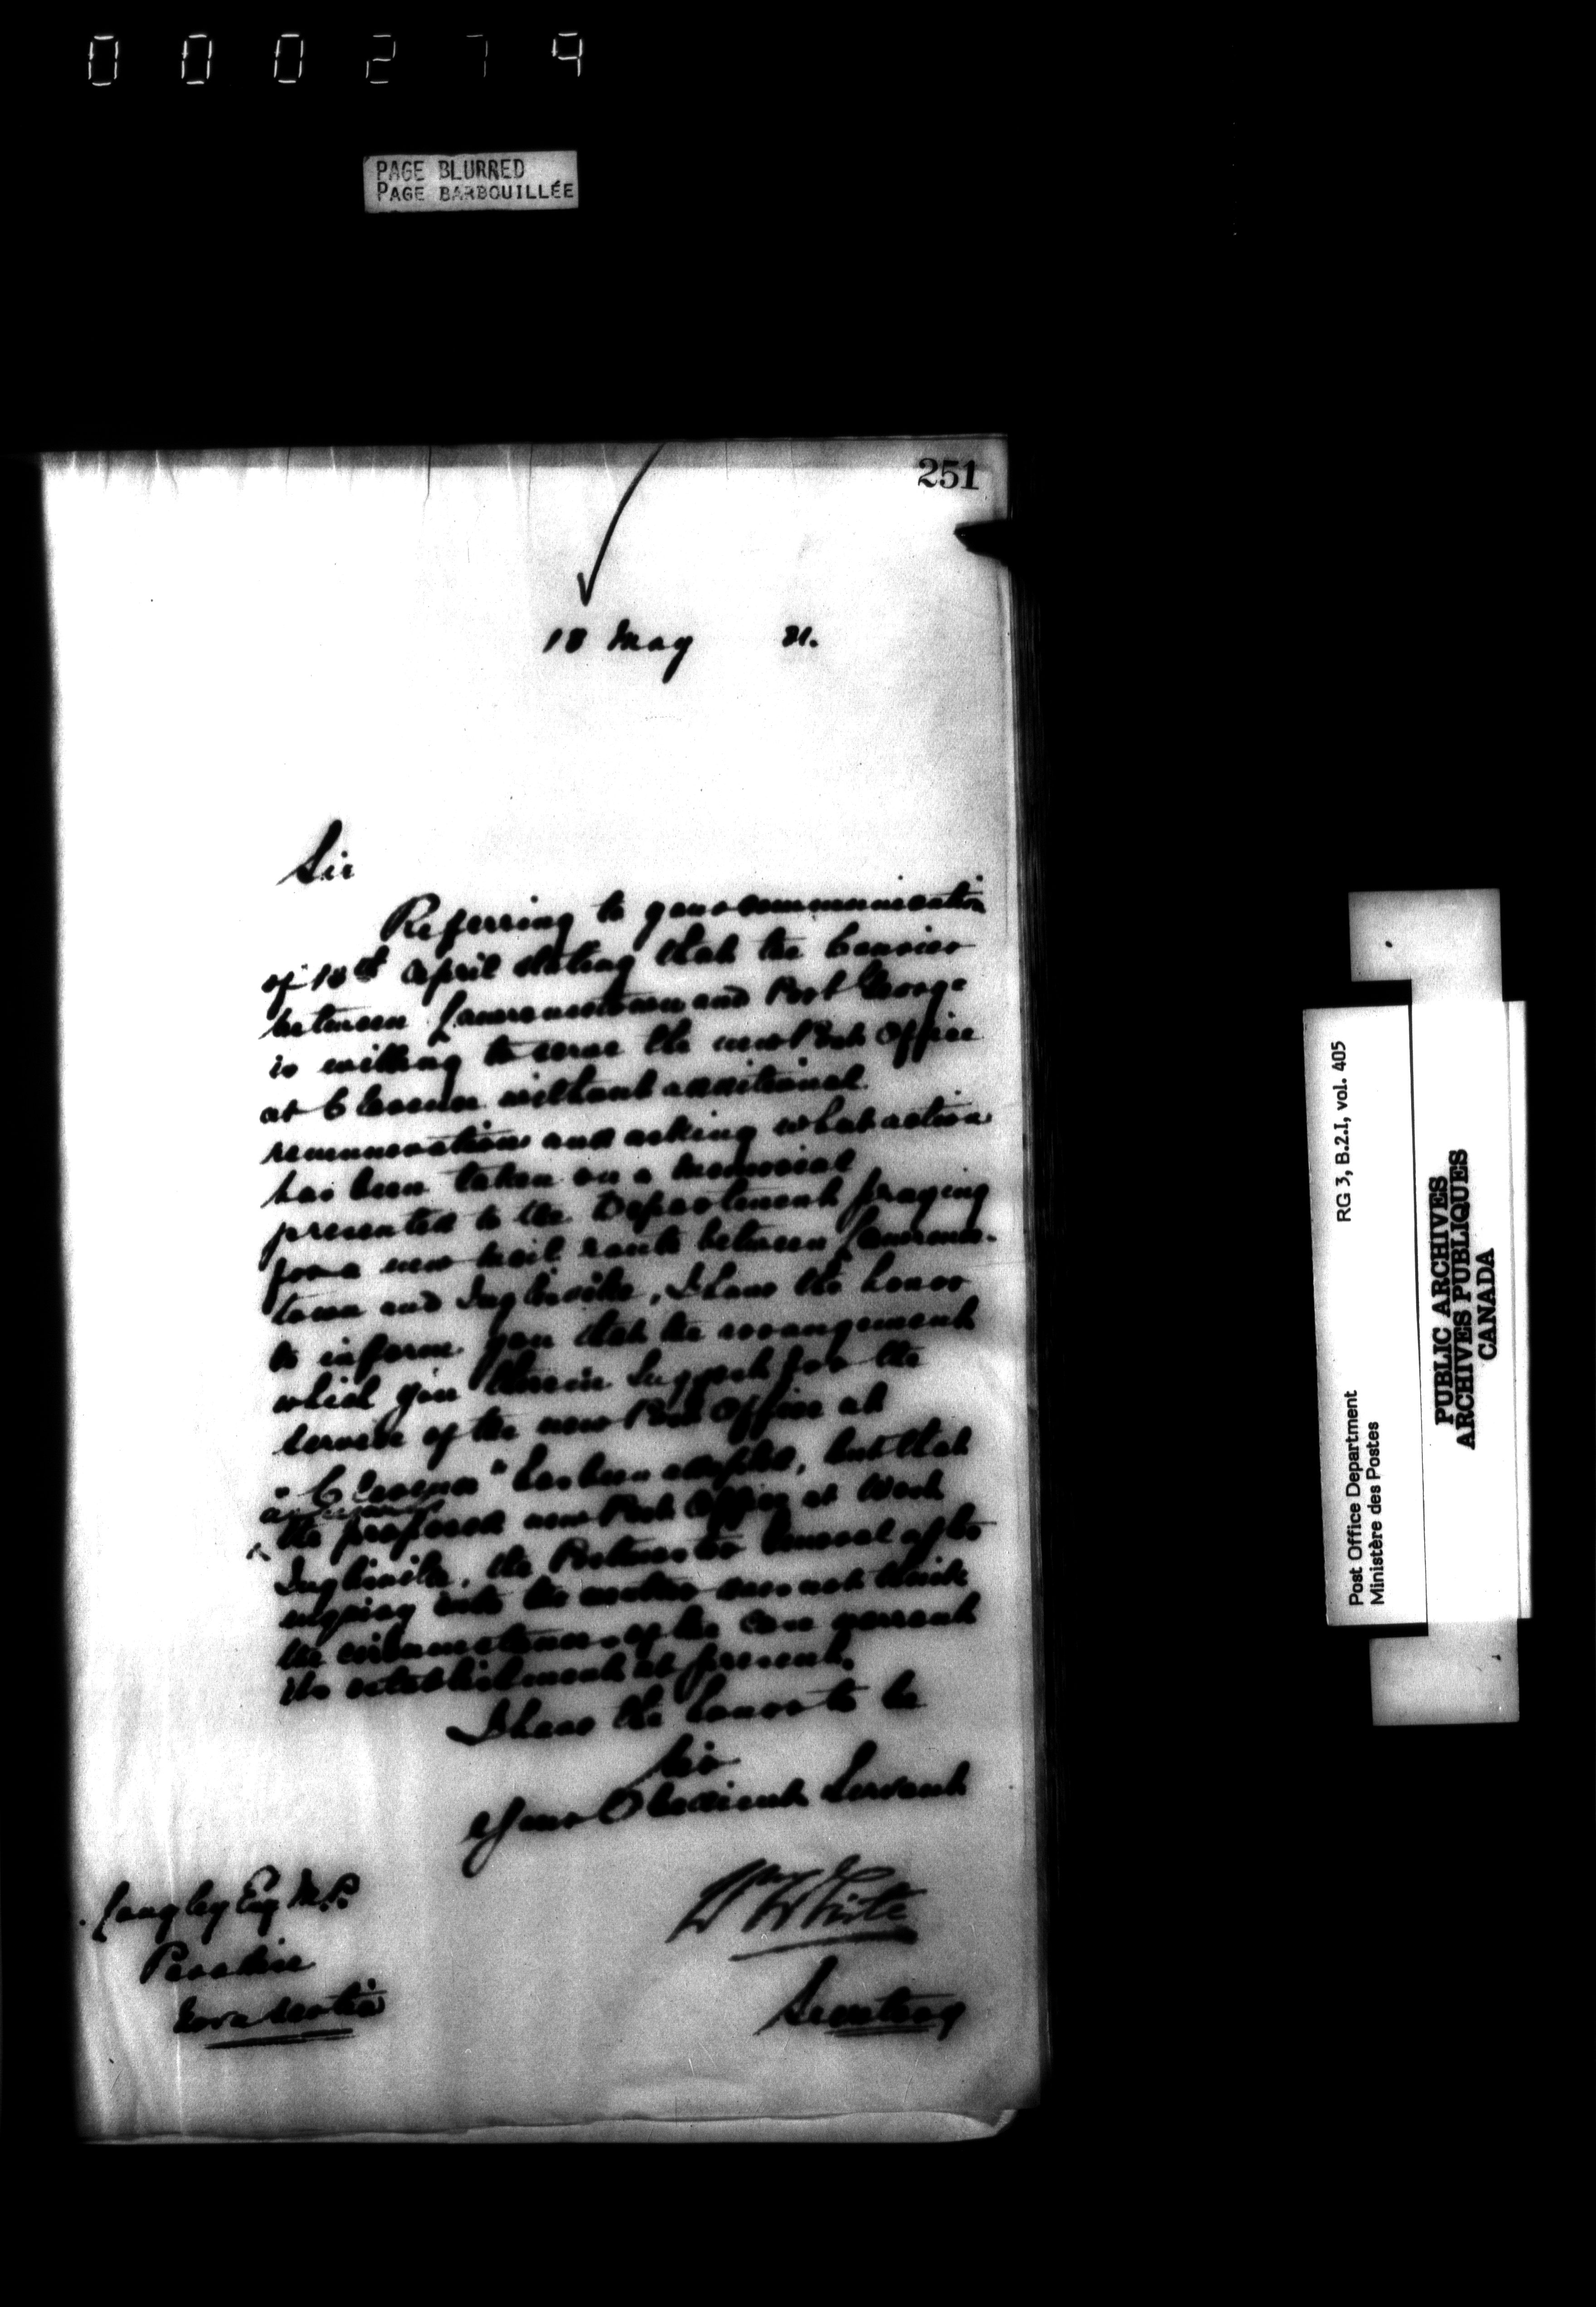 000279
PAGE BLURRED
PAGE BARBOUILLÉE
251
18 May 81.
Sir
Referring to your communication
of 18th April stating that the Courier
between Lawrencetown and Port George
is willing to serve the new Post Office
at without additional
remuneration and asking what action
has been taken on a memorial
presented to the Department praying
for a new mail route between Lawrence-
town and Inglisville, I have the honor
to inform you that the arrangement
which you therein suggest for the
service of the new Post Office at
" " has been adopted, but that
the proposed new Post Office at West
Inglisville, the Postmaster General after
enquiry into the matter does not think
the circumstances of the case warrant
its establishment at present.
I have the honor to be
Sir
Your Obedient Servant
Wm White
Secretary
Longley Esq M.P.
Paradise
Nova Scotia
Post Office Department RG 3, B.2.I, vol. 405
Ministère des Postes
PUBLIC ARCHIVES
ARCHIVES PUBLIQUES
CANADA